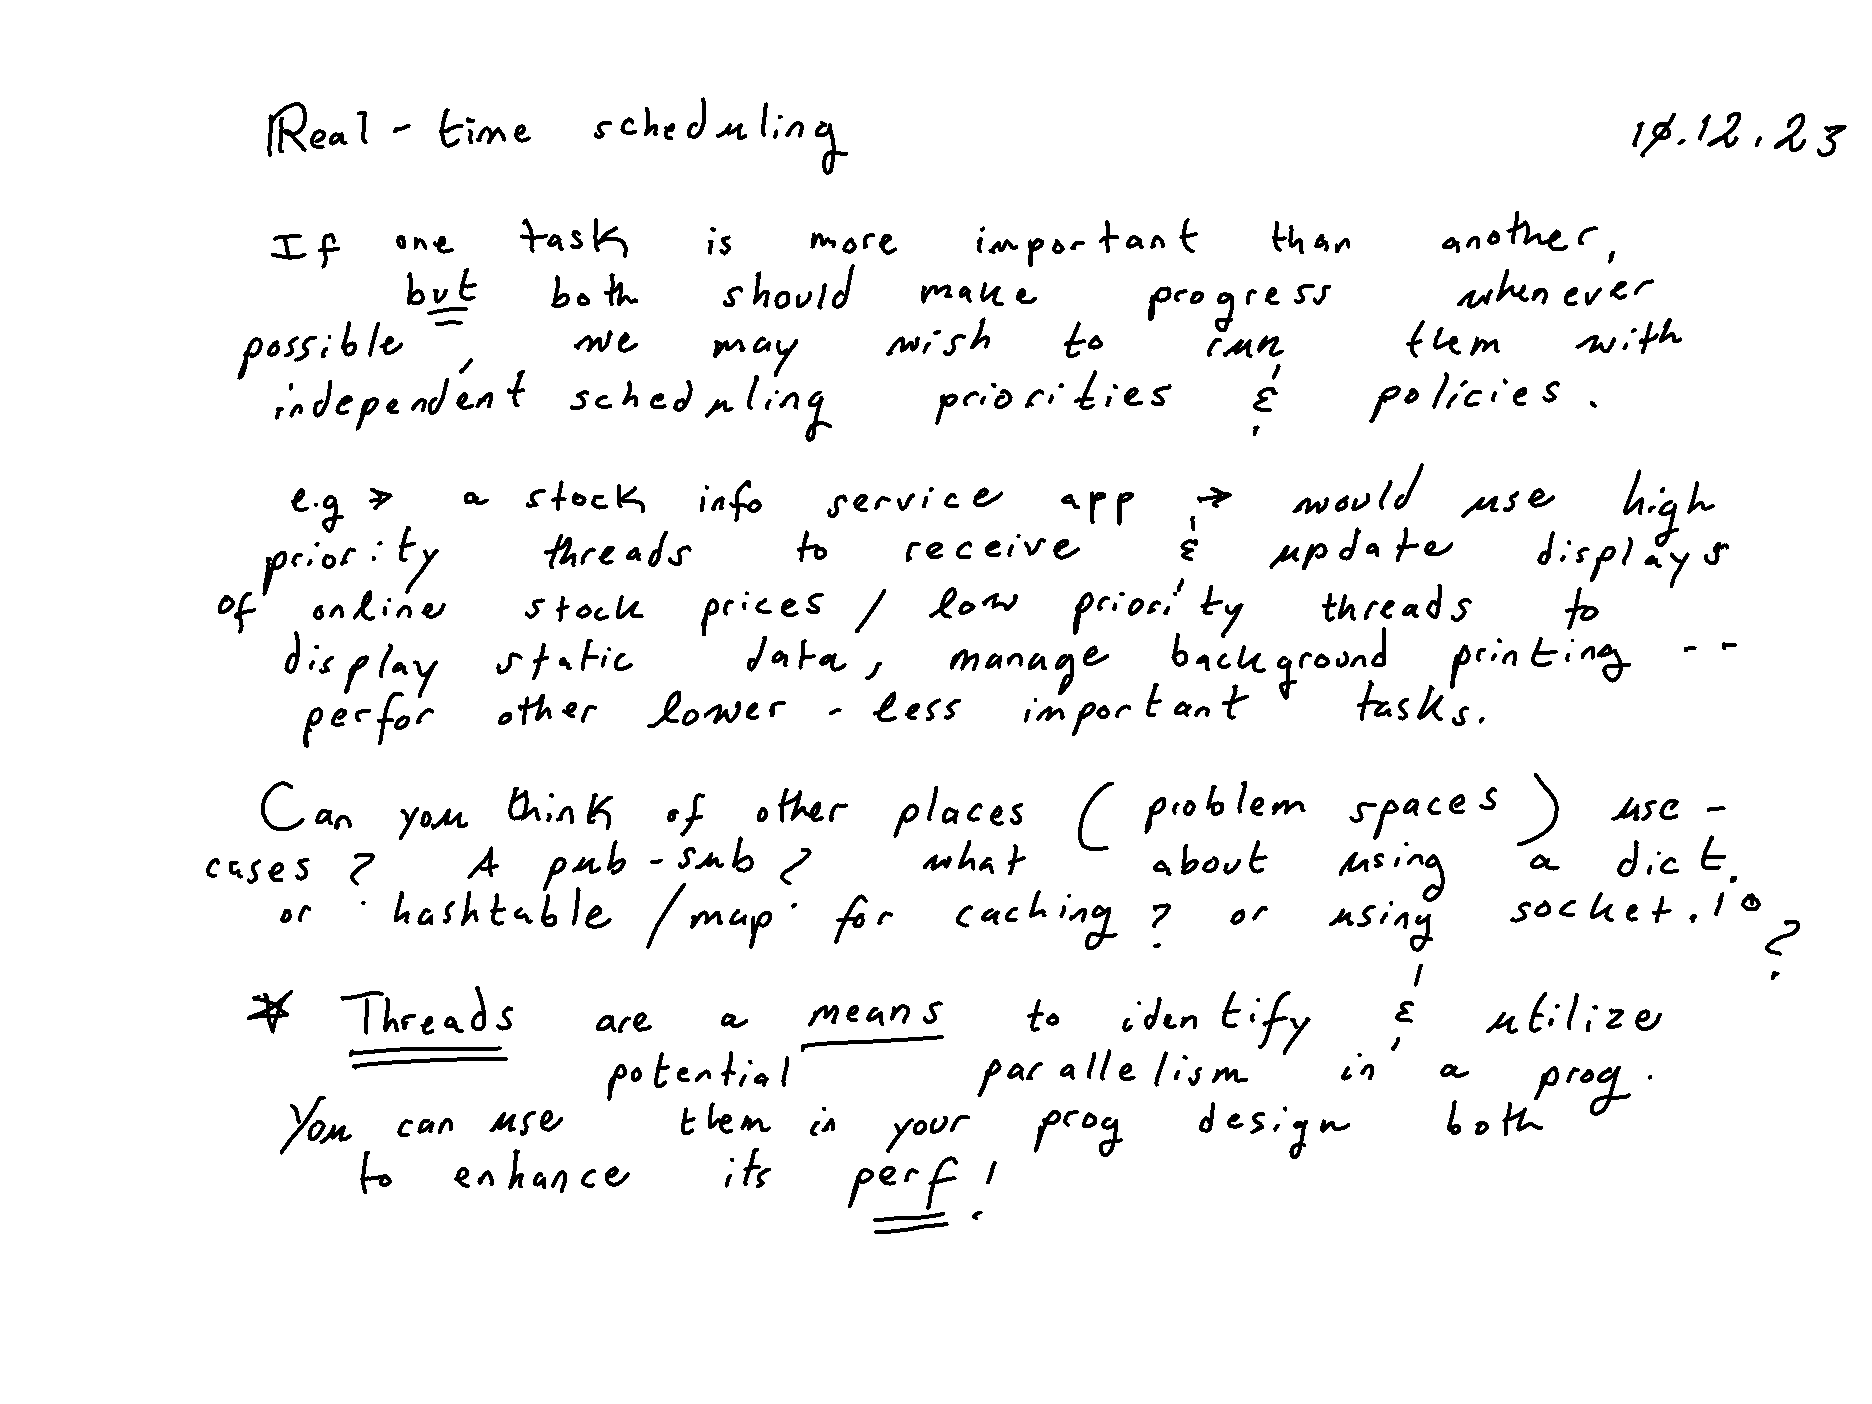 Real-time scheduling 10.12.23
If one task is more important than another,
but both should make progress whenever
possible, we may wish to run them with
independent scheduling priorities & policies.
e.g → a stock info service app → would use high
priority threads to receive & update displays
of online stock prices / low priority threads to
display static data, manage background printing --
perfor other lower - less important tasks.
Can you think of other places (problem spaces) use-
cases? A pub-sub? what about using a dict.
or 'hashtable/map' for caching? or using socket.io?
* Threads are a means to identify & utilize
potential parallelism in a prog.
You can use them in your prog design both
to enhance its perf!